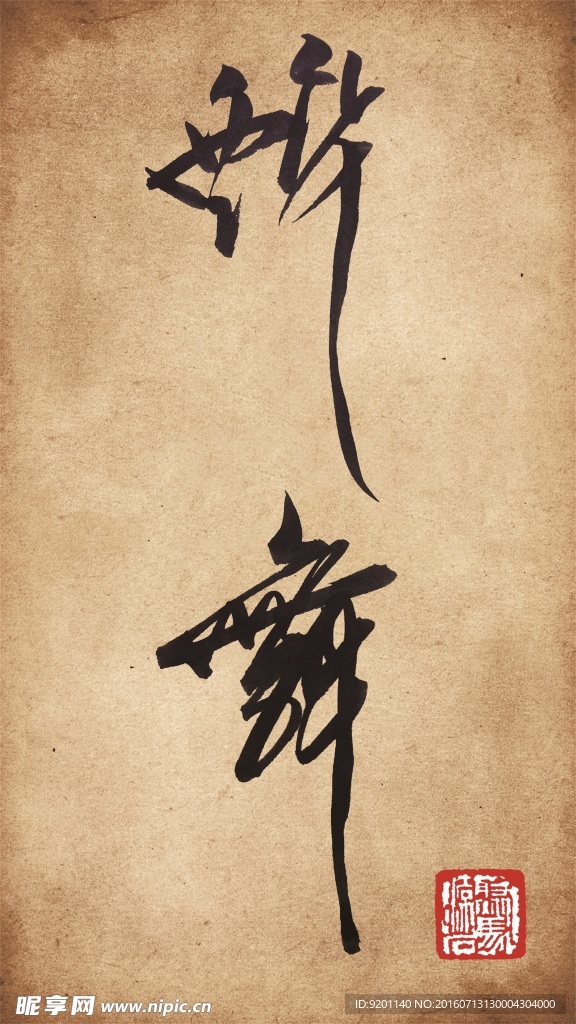 醉
舞
昵享网 www.nipic.cn
ID:9201140 NO:20160713130004304000